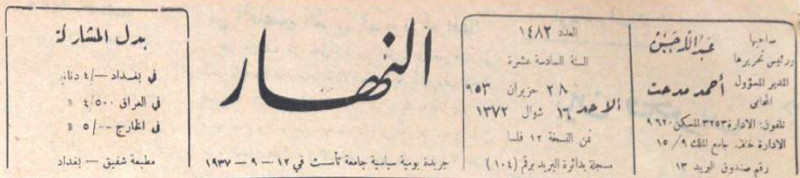 صاحبها
ورئيس تحريرها
عبدالله حسن
المدير المسؤول
المحامي
أحمد مدحت
تلفون: الادارة ٣٢٥٣ المسكن ٩٦٢٠
الادارة خلف جامع الملك ٩ / ١٥
رقم صندوق البريد ١٣
العدد ١٤٨٢
السنة السادسة عشرة
الاحد
٢٨ حزيران ٩٥٣
١٦ شوال ١٣٧٢
ثمن النسخة ١٢ فلسا
مسجلة بدائرة البريد برقم (١٠٤)
النهار
جريدة يومية سياسية جامعة تأسست في ١٢ – ٩ – ١٩٣٧
بدل المشاركة
في بغداد –/٤ دنانير
في العراق ٤/٥٠٠ »
في الخارج –/٥ »
مطبعة شفيق – بغداد